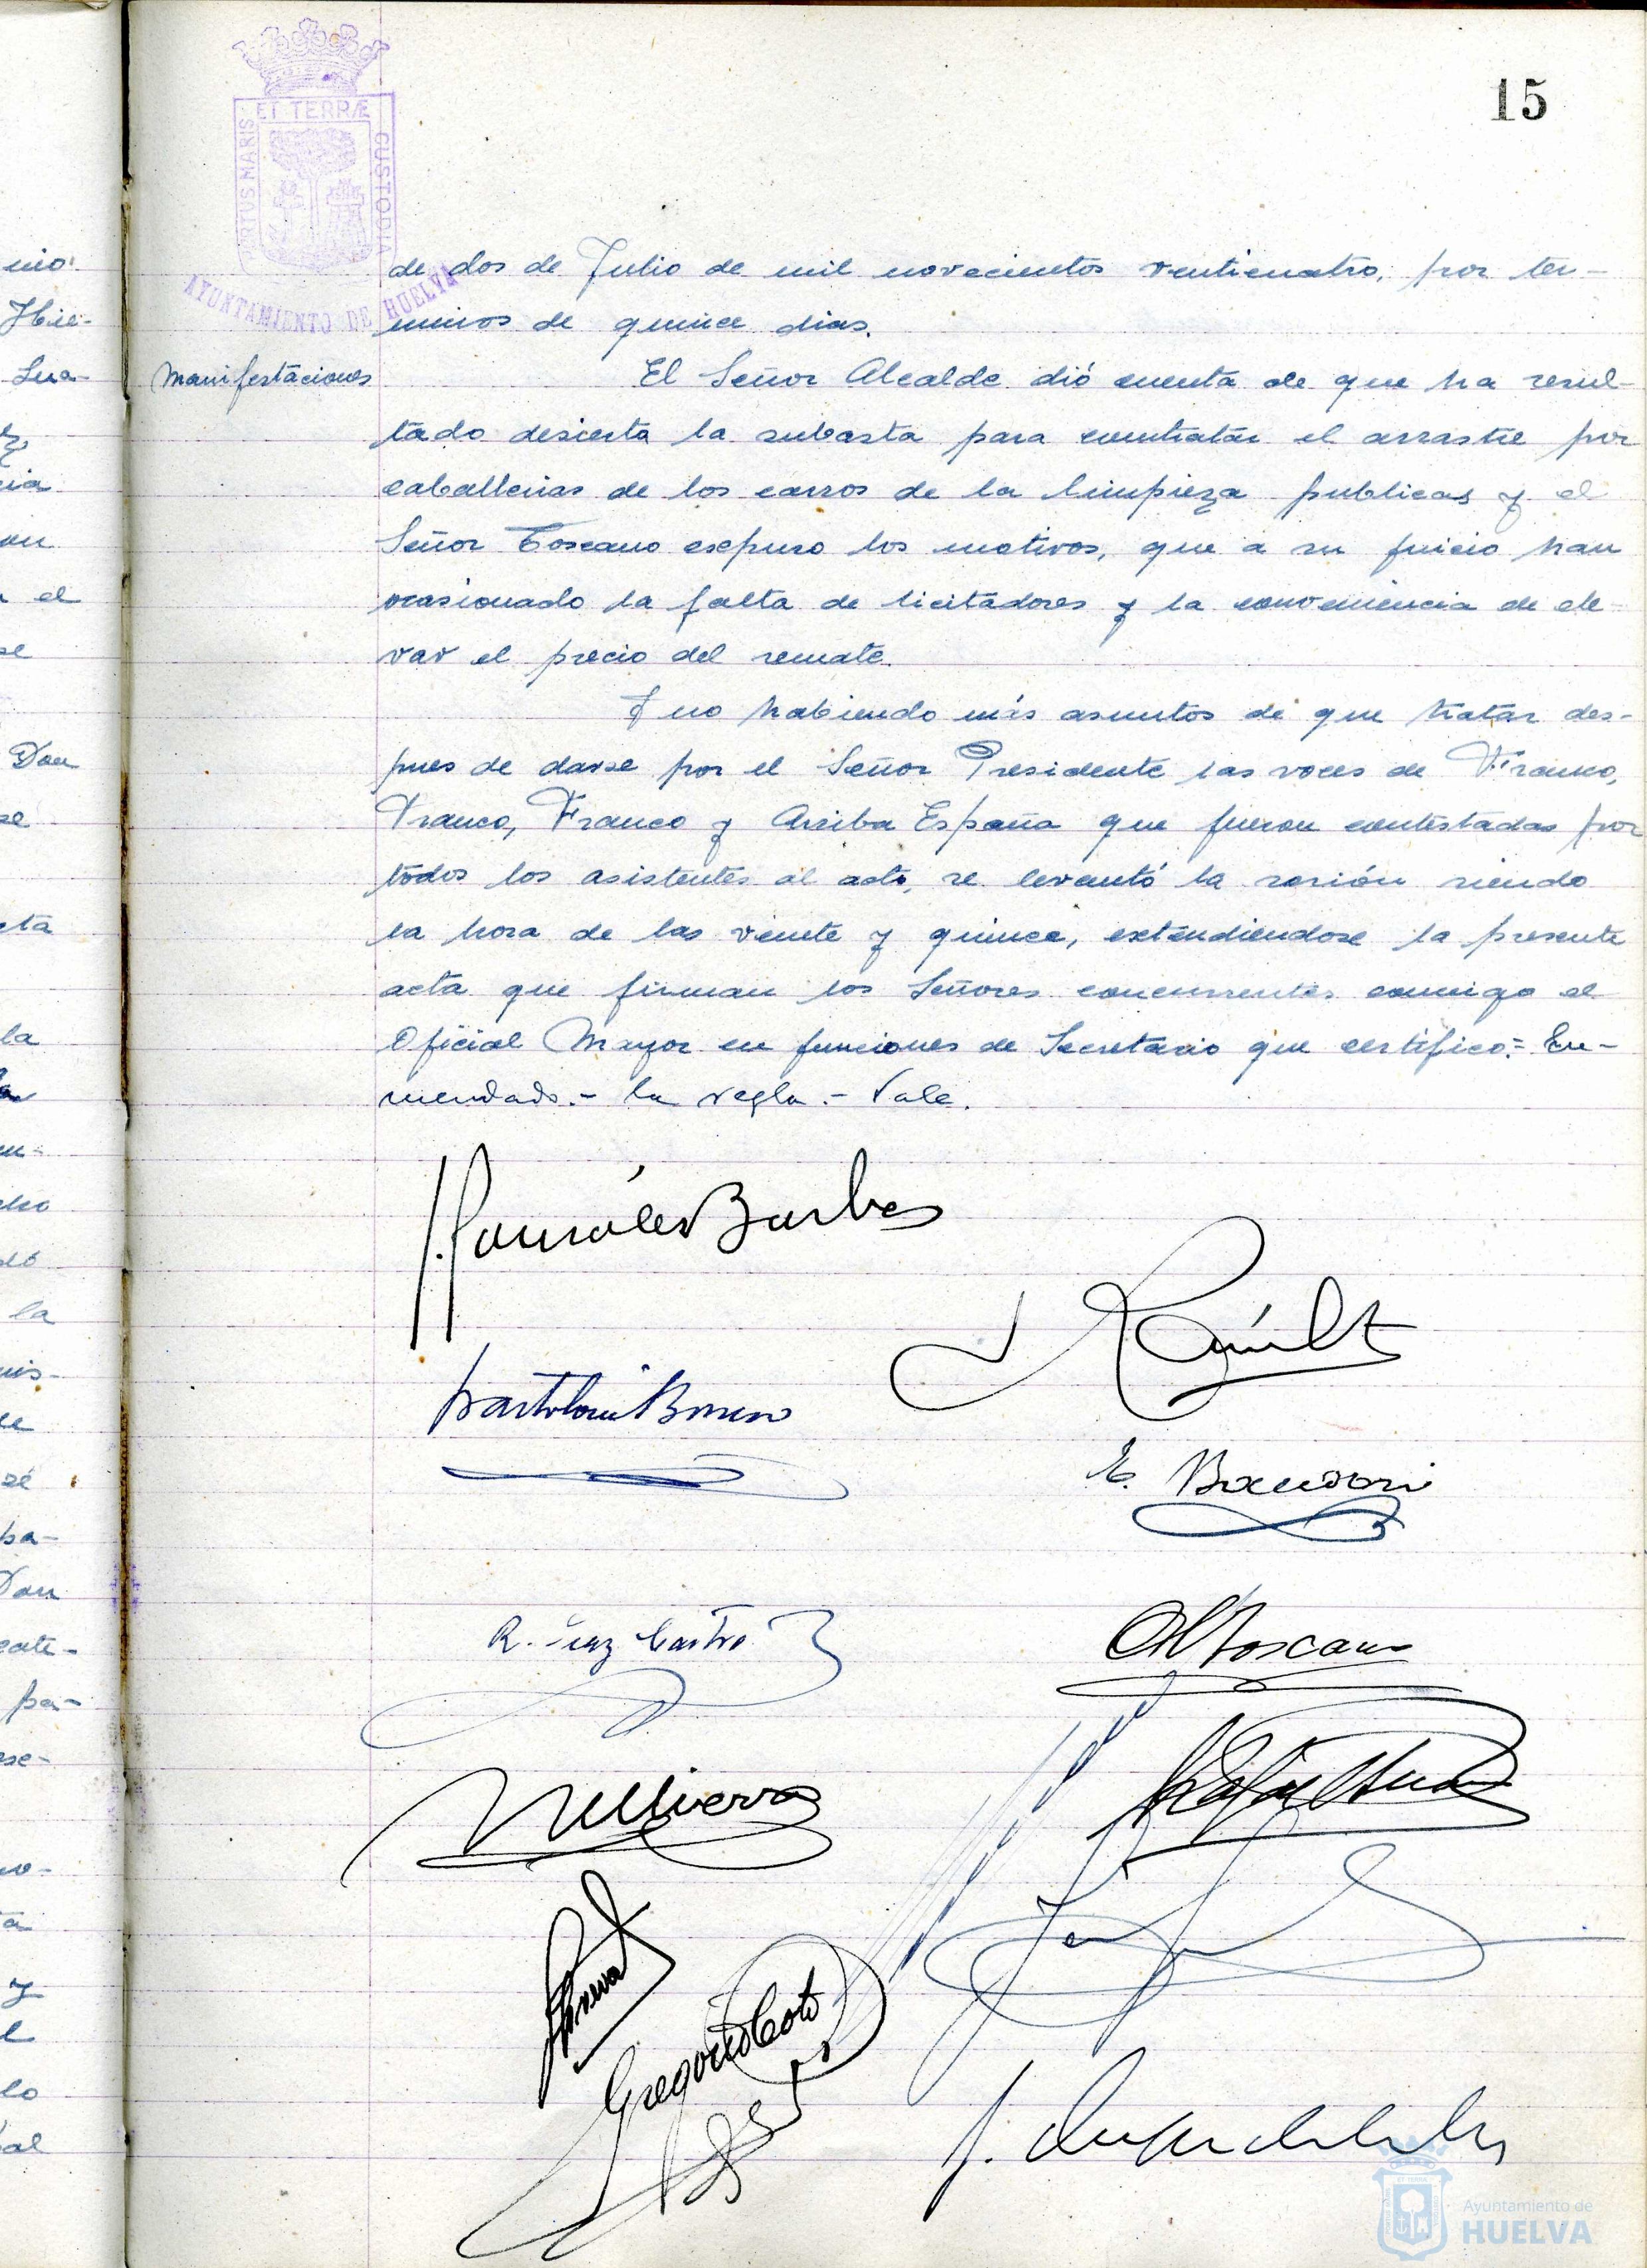 15
ET TERRÆ
RTUS MARIS
CUSTODIA
AYUNTAMIENTO DE HUELVA
de dos de Julio de mil novecientos venticuatro, por ter-
minos de quince dias.
Manifestaciones
El Señor Alcalde dió cuenta de que ha resul-
tado desierta la subasta para contratar el arrastre por
caballerias de los carros de la limpieza publicas y el
Señor Toscano expuso los motivos, que a su juicio han
ocasionado la falta de licitadores y la conveniencia de ele-
var el precio del remate.
Y no habiendo más asuntos de que tratar des-
pues de darse por el Señor Presidente las voces de Franco,
Franco, Franco y Arriba España que fueron contestadas por
todos los asistentes al acto, se levantó la sesión siendo
la hora de las veinte y quince, extendiendose la presente
acta que firman los Señores concurrentes conmigo el
Oficial Mayor en funciones de Secretario que certifico.= En-
mendado.- la regla.- Vale.
González Barba
E.
R. Diaz Castro
Toscano
Gregorio Coto
mo
Hue-
el
Don
se
cta
la
la
se
Don
pa-
y
lo
al
Ayuntamiento de
HUELVA